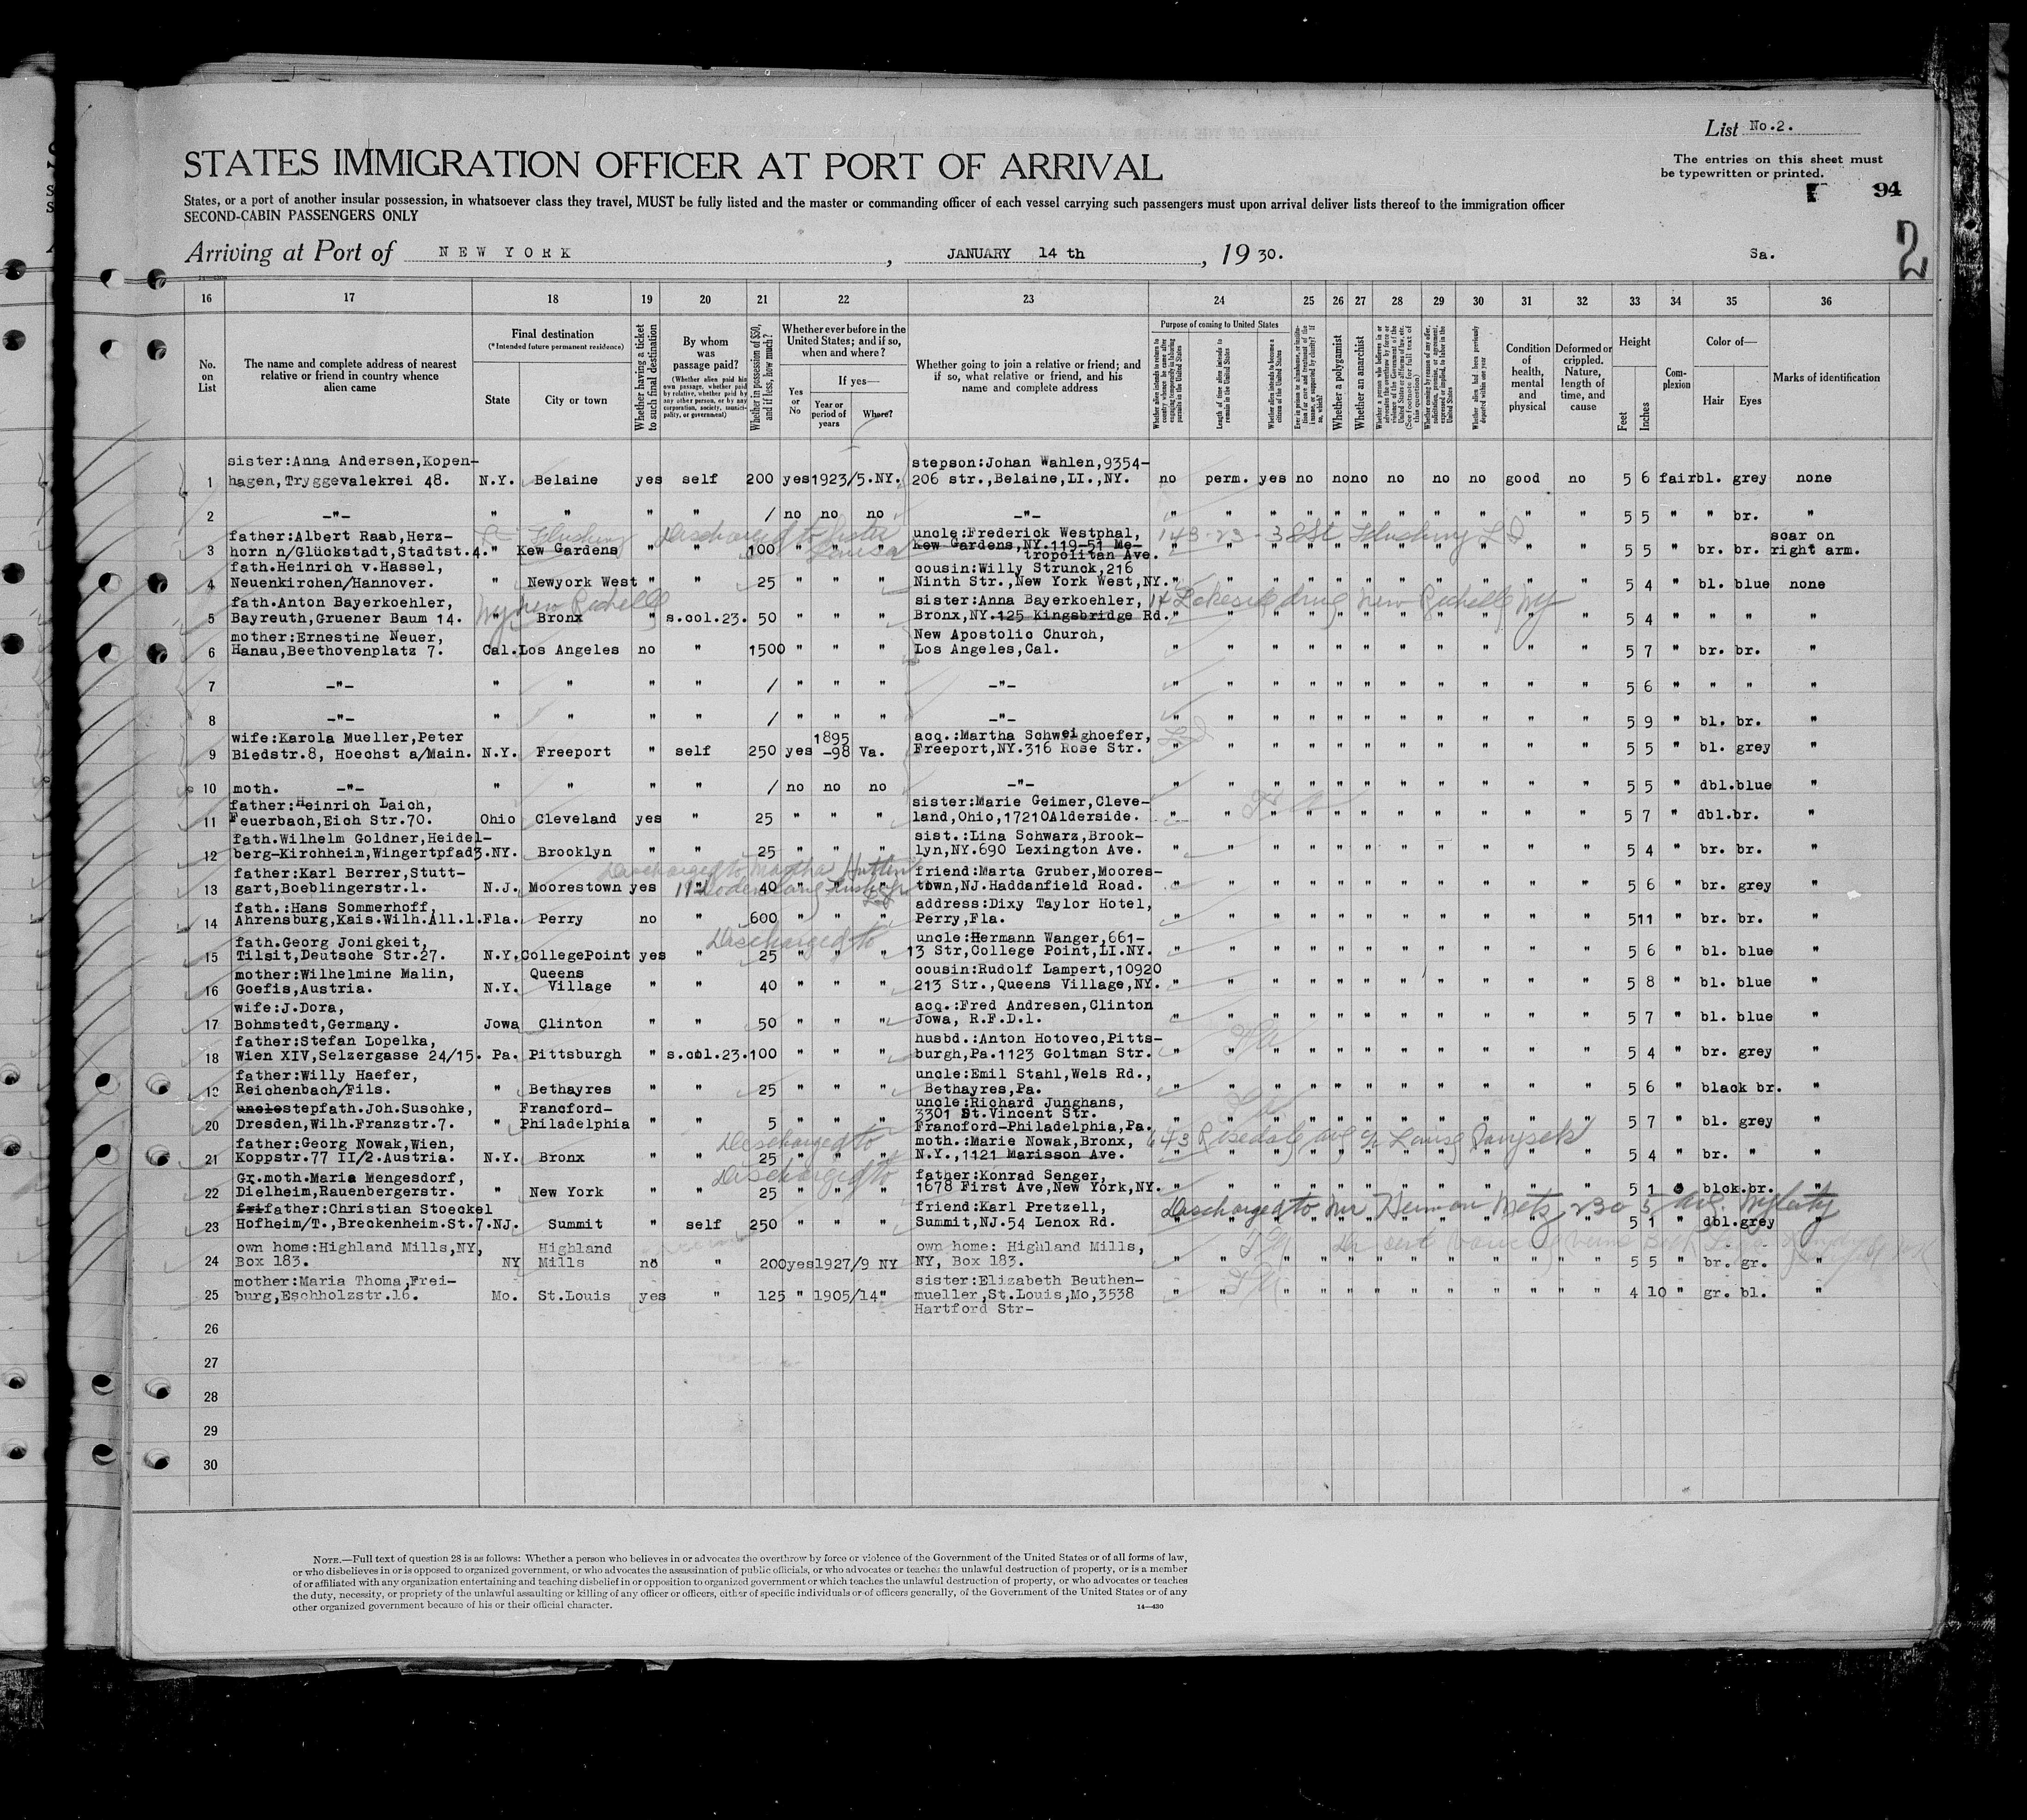 List No.2.
STATES IMMIGRATION OFFICER AT PORT OF ARRIVAL
The entries on this sheet must
be typewritten or printed.
94
2
States, or a port of another insular possession, in whatsoever class they travel, MUST be fully listed and the master or commanding officer of each vessel carrying such passengers must upon arrival deliver lists thereof to the immigration officer
SECOND-CABIN PASSENGERS ONLY
Arriving at Port of NEW YORK, JANUARY 14 th, 19 30.
Sa.
16 17 18 19 20 21 22 23 24 25 26 27 28 29 30 31 32 33 34 35 36
No. on List
The name and complete address of nearest relative or friend in country whence alien came
Final destination
(*Intended future permanent residence)
State
City or town
Whether having a ticket to such final destination
By whom was passage paid?
(Whether alien paid his own passage, whether paid by relative, whether paid by any other person, or by any corporation, society, municipality, or government)
Whether in possession of $50, and if less, how much?
Whether ever before in the United States; and if so, when and where?
Yes or No
If yes—
Year or period of years
Where?
Whether going to join a relative or friend; and if so, what relative or friend, and his name and complete address
Purpose of coming to United States
Length of time alien intends to remain in the United States
Whether alien intends to become a citizen of the United States
Whether a polygamist
Whether an anarchist
Condition of health, mental and physical
Deformed or crippled. Nature, length of time, and cause
Height
Feet
Inches
Complexion
Color of—
Hair
Eyes
Marks of identification
1 sister:Anna Andersen,Kopenhagen,Tryggevalekrei 48. N.Y. Belaine yes self 200 yes 1923/5.NY. stepson:Johan Wahlen,9354-206 str.,Belaine,LI.,NY. no perm. yes no no no no no no good no 5 6 fair bl. grey none
2 -"- " " " " / no no no -"- " " " " " " " " " " " 5 5 " " br. "
3 father:Albert Raab,Herzhorn n/Glückstadt,Stadtst.4. " Kew Gardens " " 100 " " " uncle:Frederick Westphal, Kew Gardens,NY.119-51 Metropolitan Ave. " " " " " " " " " " " 5 5 " br. br. scar on right arm.
Flushing
Discharged to Sister
143-23-3
Flushing L I
4 fath.Heinrich v.Hassel, Neuenkirchen/Hannover. " Newyork West " " 25 " " " cousin:Willy Strunck,216 Ninth Str.,New York West,NY. " " " " " " " " " " " 5 4 " bl. blue none
5 fath.Anton Bayerkoehler, Bayreuth,Gruener Baum 14. " Bronx " s.col.23. 50 " " " sister:Anna Bayerkoehler, Bronx,NY.125 Kingsbridge Rd. " " " " " " " " " " " 5 4 " " " "
NY New Rochelle
Lakeside drive New Rochelle NY
6 mother:Ernestine Neuer, Hanau,Beethovenplatz 7. Cal. Los Angeles no " 1500 " " " New Apostolic Church, Los Angeles,Cal. " " " " " " " " " " " 5 7 " br. br. "
7 -"- " " " " / " " " -"- " " " " " " " " " " " 5 6 " " " "
8 -"- " " " " / " " " -"- " " " " " " " " " " " 5 9 " bl. br. "
9 wife:Karola Mueller,Peter Biedstr.8, Hoechst a/Main. N.Y. Freeport " self 250 yes 1895-98 Va. acq.:Martha Schweighoefer, Freeport,NY.316 Rose Str. " " " " " " " " " " " 5 5 " bl. grey "
10 moth. -"- " " " " / no no no -"- " " " " " " " " " " " 5 5 " dbl.blue "
11 father:Heinrich Laich, Feuerbach,Eich Str.70. Ohio Cleveland yes " 25 " " " sister:Marie Geimer,Cleveland,Ohio,17210Alderside. " " " " " " " " " " " 5 7 " dbl.br. "
12 fath.Wilhelm Goldner,Heidelberg-Kirchheim,Wingertpfad3. NY. Brooklyn " " 25 " " " sist.:Lina Schwarz,Brooklyn,NY.690 Lexington Ave. " " " " " " " " " " " 5 4 " br. br. "
Discharged to Martha
13 father:Karl Berrer,Stuttgart,Boeblingerstr.1. N.J. Moorestown yes " 40 " " " friend:Marta Gruber,Moorestown,NJ.Haddanfield Road. " " " " " " " " " " " 5 6 " br. grey "
14 fath.:Hans Sommerhoff, Ahrensburg,Kais.Wilh.All.1. Fla. Perry no " 600 " " " address:Dixy Taylor Hotel, Perry,Fla. " " " " " " " " " " " 5 11 " br. br. "
Discharged to
15 fath.Georg Jonigkeit, Tilsit,Deutsche Str.27. N.Y. CollegePoint yes " 25 " " " uncle:Hermann Wanger,661-13 Str,College Point,LI.NY. " " " " " " " " " " " 5 6 " bl. blue "
16 mother:Wilhelmine Malin, Goefis,Austria. N.Y. Queens Village " " 40 " " " cousin:Rudolf Lampert,10920 213 Str.,Queens Village,NY. " " " " " " " " " " " 5 8 " bl. blue "
17 wife:J.Dora, Bohmstedt,Germany. Jowa Clinton " " 50 " " " acq.:Fred Andresen,Clinton Jowa, R.F.D.1. " " " " " " " " " " " 5 7 " bl. blue "
18 father:Stefan Lopelka, Wien XIV,Selzergasse 24/15. Pa. Pittsburgh " s.col.23. 100 " " " husbd.:Anton Hotovec,Pittsburgh,Pa.1123 Goltman Str. " " " " " " " " " " " 5 4 " br. grey "
19 father:Willy Haefer, Reichenbach/Fils. " Bethayres " " 25 " " " uncle:Emil Stahl,Wels Rd., Bethayres,Pa. " " " " " " " " " " " 5 6 " black br. "
20 uncle stepfath.Joh.Suschke, Dresden,Wilh.Franzstr.7. " Francford-Philadelphia " " 5 " " " uncle:Richard Junghans, 3301 St.Vincent Str. Francford-Philadelphia,Pa. " " " " " " " " " " " 5 7 " bl. grey "
Discharged to
643 Rosedale ave c/o
21 father:Georg Nowak,Wien, Koppstr.77 II/2.Austria. N.Y. Bronx " " 25 " " " moth.:Marie Nowak,Bronx, N.Y.,1121 Marisson Ave. " " " " " " " " " " " 5 4 " br. " "
Discharged to
22 Gr.moth.Maria Mengesdorf, Dielheim,Rauenbergerstr. " New York " " 25 " " " father:Konrad Senger, 1678 First Ave,New York,NY. " " " " " " " " " " " 5 1 " blck.br. "
Discharged to Mr Herman Metz 230 5 Ave. NY City
23 fri father:Christian Stoeckel Hofheim/T.,Breckenheim.St.7. NJ. Summit " self 250 " " " friend:Karl Pretzell, Summit,NJ.54 Lenox Rd. " " " " " " " " " " " 5 1 " dbl.grey "
24 own home:Highland Mills,NY, Box 183. NY Highland Mills no " 200 yes 1927/9 NY own home: Highland Mills, NY, Box 183. " " " " " " " " " " " 5 5 " br. gr. "
25 mother:Maria Thoma,Freiburg,Eschholzstr.16. Mo. St.Louis yes " 125 " 1905/14 " sister:Elizabeth Beuthenmueller,St.Louis,Mo,3538 Hartford Str- " " " " " " " " " " " 4 10 " gr. bl. "
26
27
28
29
30
NOTE.—Full text of question 28 is as follows: Whether a person who believes in or advocates the overthrow by force or violence of the Government of the United States or of all forms of law,
or who disbelieves in or is opposed to organized government, or who advocates the assassination of public officials, or who advocates or teaches the unlawful destruction of property, or is a member
of or affiliated with any organization entertaining and teaching disbelief in or opposition to organized government or which teaches the unlawful destruction of property, or who advocates or teaches
the duty, necessity, or propriety of the unlawful assaulting or killing of any officer or officers, either of specific individuals or of officers generally, of the Government of the United States or of any
other organized government because of his or their official character.
14—430